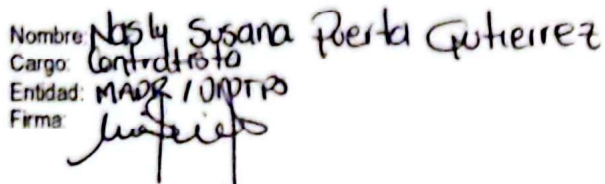 Nombre: Nasly Susana Puerta Gutierrez
Cargo: Contratista
Entidad: MADR /
Firma: